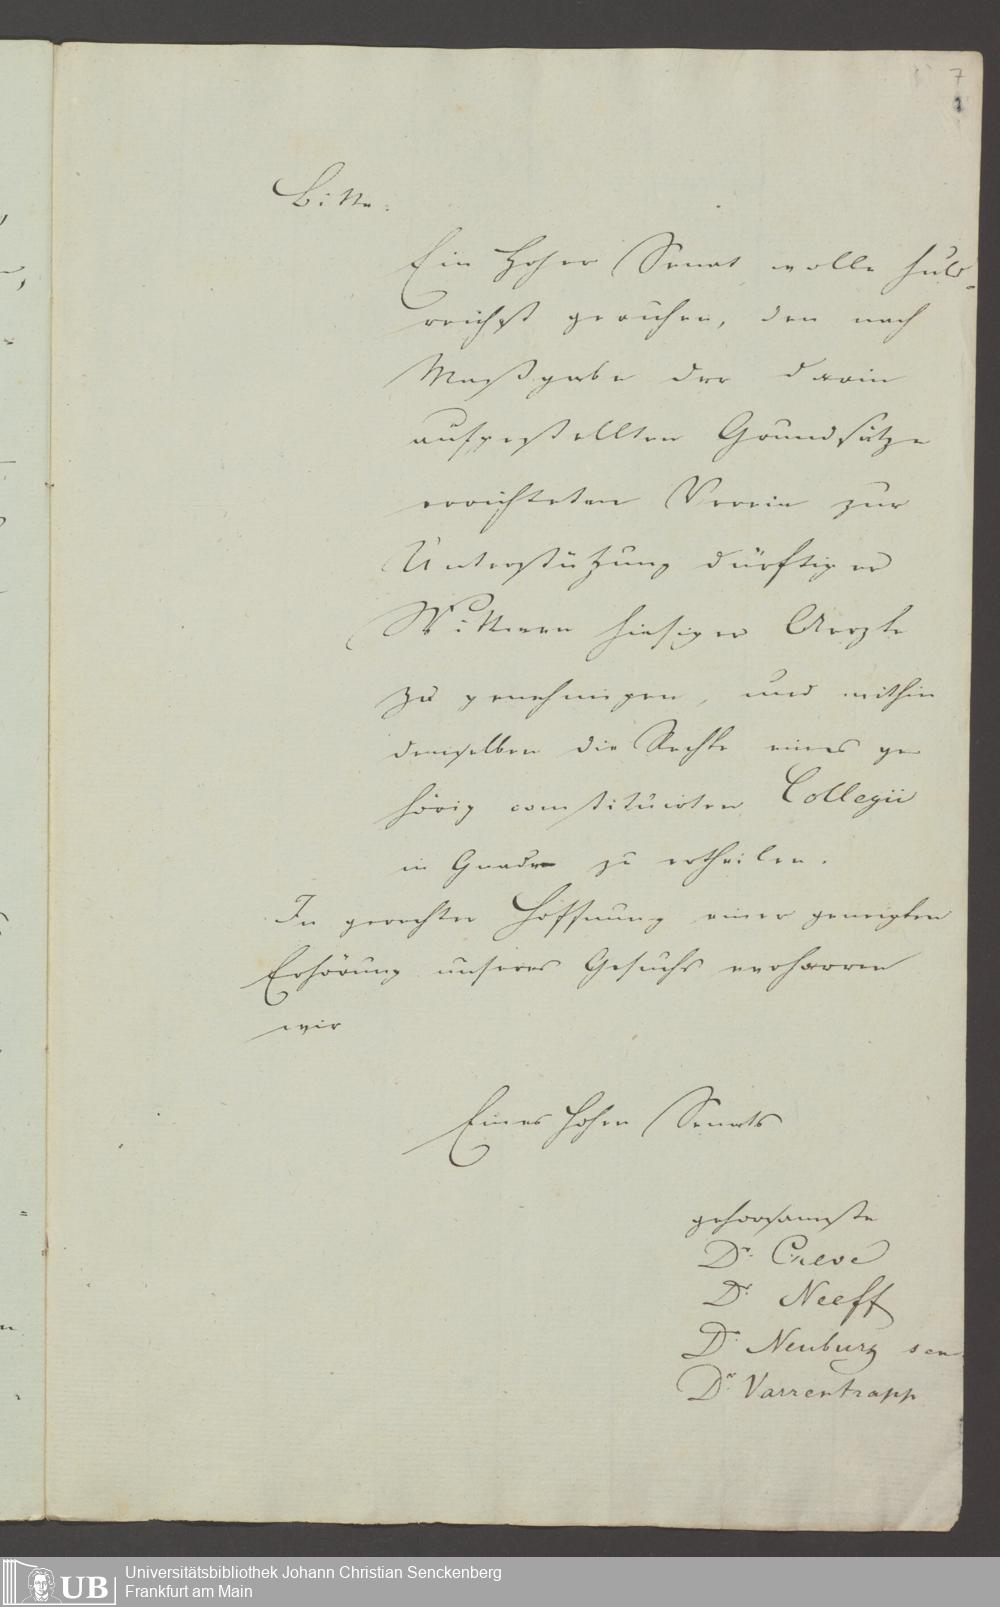 7
Bitte.
Ein Hoher Senat wolle huld-
reichst geruhen, den nach
Maßgabe der darin
aufgestellten Grundsätze
errichteten Verein zur
Unterstützung dürftiger
Wittwen hiesiger Aerzte
zu genehmigen, und mithin
demselben die Rechte eines ge
hörig constituirten Collegii
in Gnaden zu ertheilen.
In gerechter Hoffnung einer geneigten
Erhörung unseres Gesuchs verharren
wir
Eines Hohen Senats
gehorsamste
Dr. Creve
Dr. Neeff
Dr. Neuburg sen
Dr. Varrentrapp
UB
Universitätsbibliothek Johann Christian Senckenberg
Frankfurt am Main